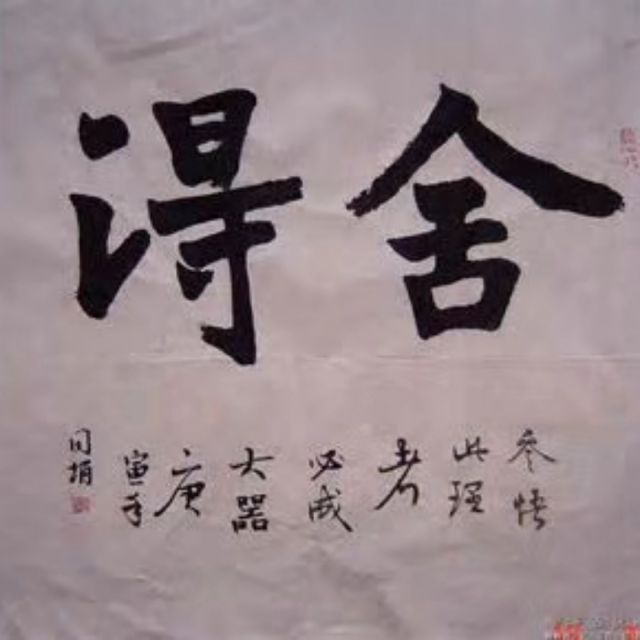 舍得
参悟
此理
者
必成
大器
庚
寅年